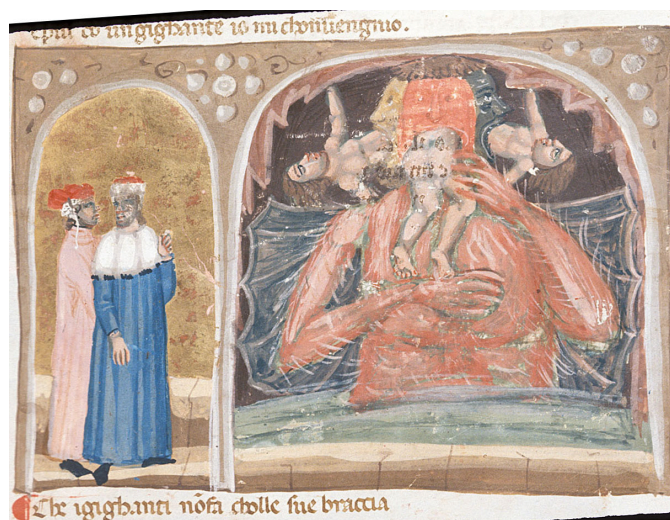 epiu co ungighante io mi chonuengnio.
Che igighanti nōfā cholle sue braccia